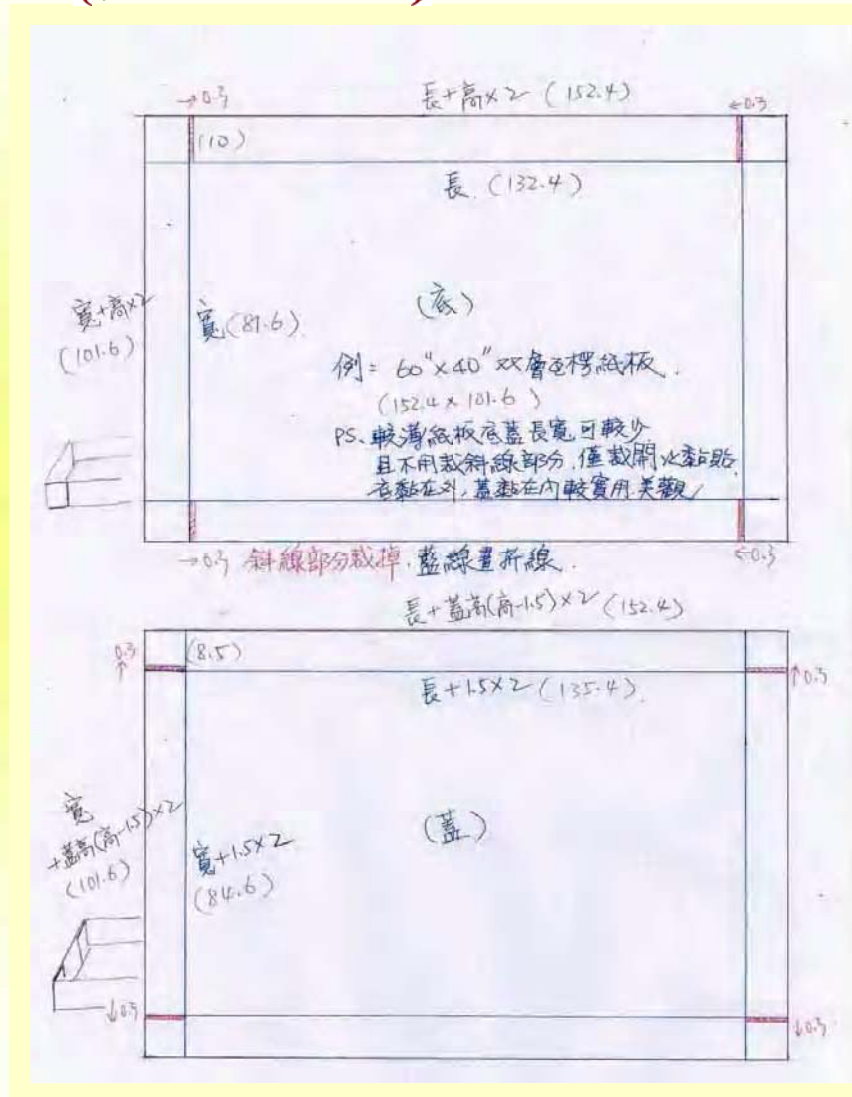 →0.3
長+高×2 (152.4)
←0.3
(10)
長 (132.4)
寬+高×2
(101.6)
寬(81.6)
(底)
例= 60"×40" 雙層瓦楞紙板.
(152.4 × 101.6)
PS. 較薄紙板底蓋長寬可較少
且不用裁斜線部分,僅裁開以黏貼.
底黏在外,蓋黏在內較實用.美觀
→0.3 斜線部分裁掉.藍線畫折線.
←0.3
長+蓋高(高-1.5)×2 (152.4)
0.3
(8.5)
0.3
長+1.5×2 (135.4)
寬
+蓋高(高-1.5)×2
(101.6)
寬+1.5×2
(84.6)
(蓋)
↓0.3
↓0.3